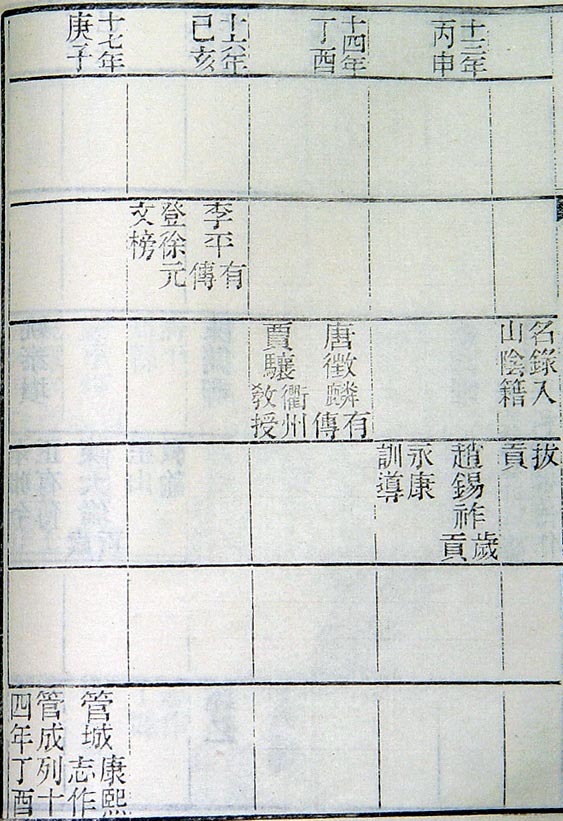 名錄入
山陰籍
拔
貢
十三年
丙申
趙錫祚歲貢
永康
訓導
十四年
丁酉
唐徵麟有傳
賈驤衢州教授
十六年
己亥
李平有傳
登徐元
文榜
十七年
庚子
管城康熙志作
管成列十
四年丁酉